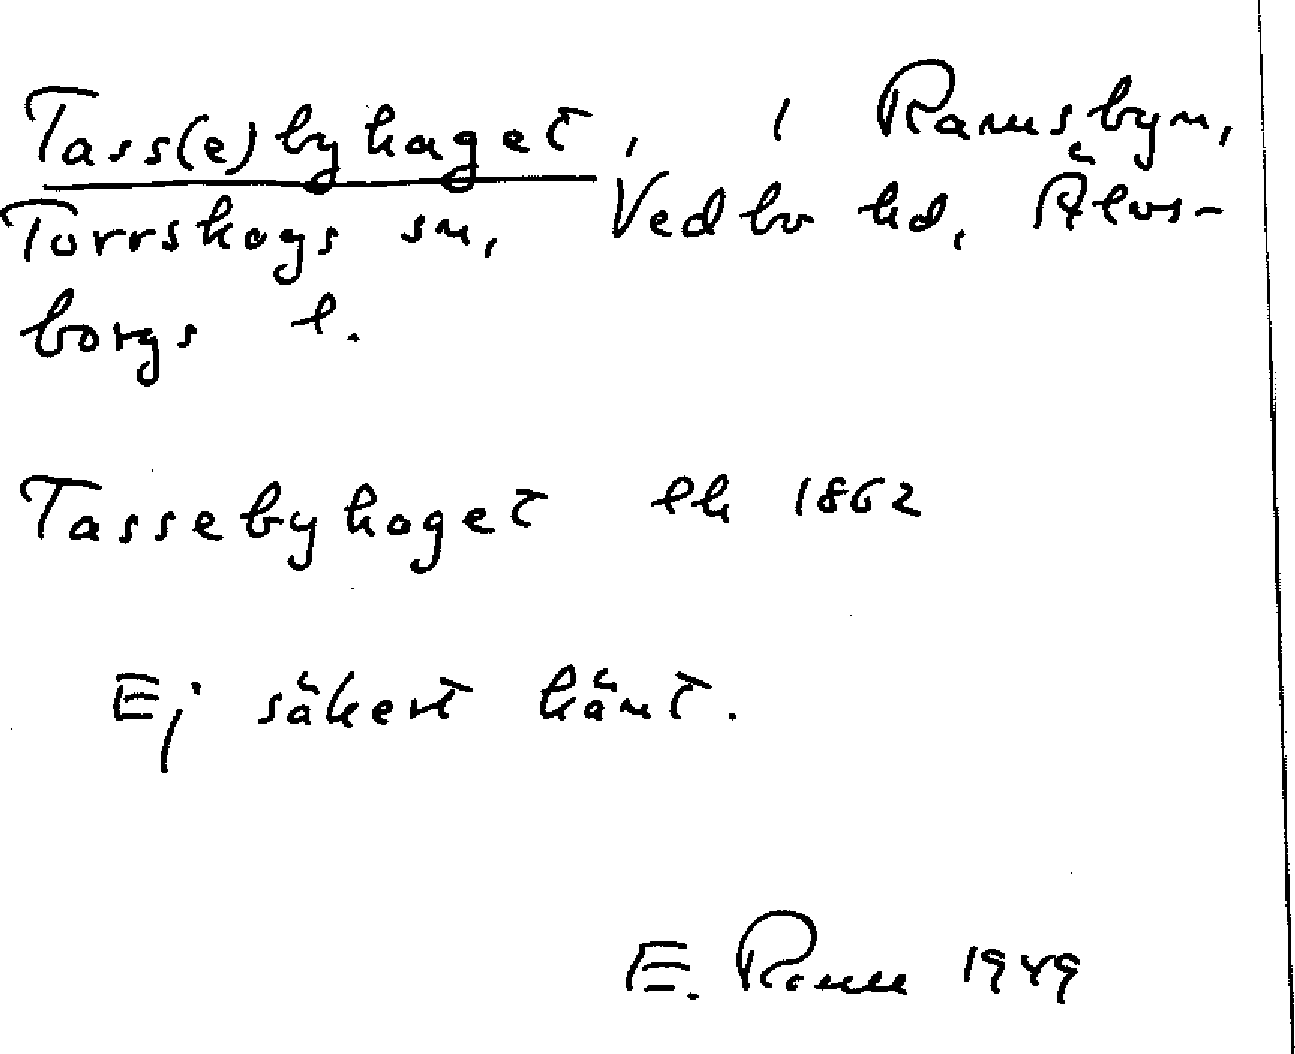 Tass(e)byhaget, i Ramsbyn,
Torrskogs sn, Vedbo hd, Älvs-
borgs l.
Tassebyhaget lk 1862
Ej säkert känt.
E. 1949